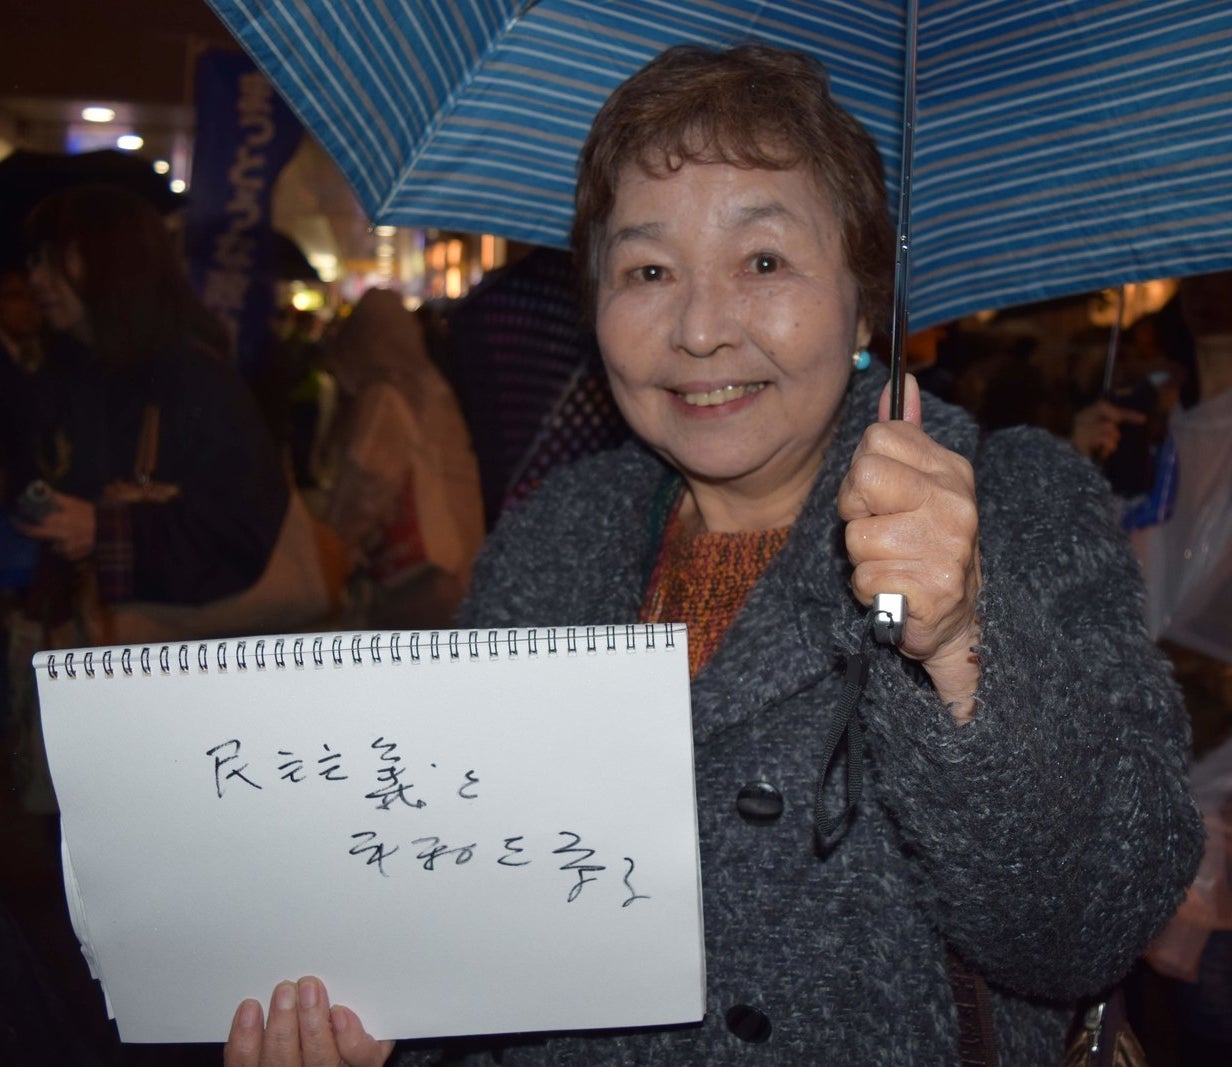 民主主義と
平和を守る